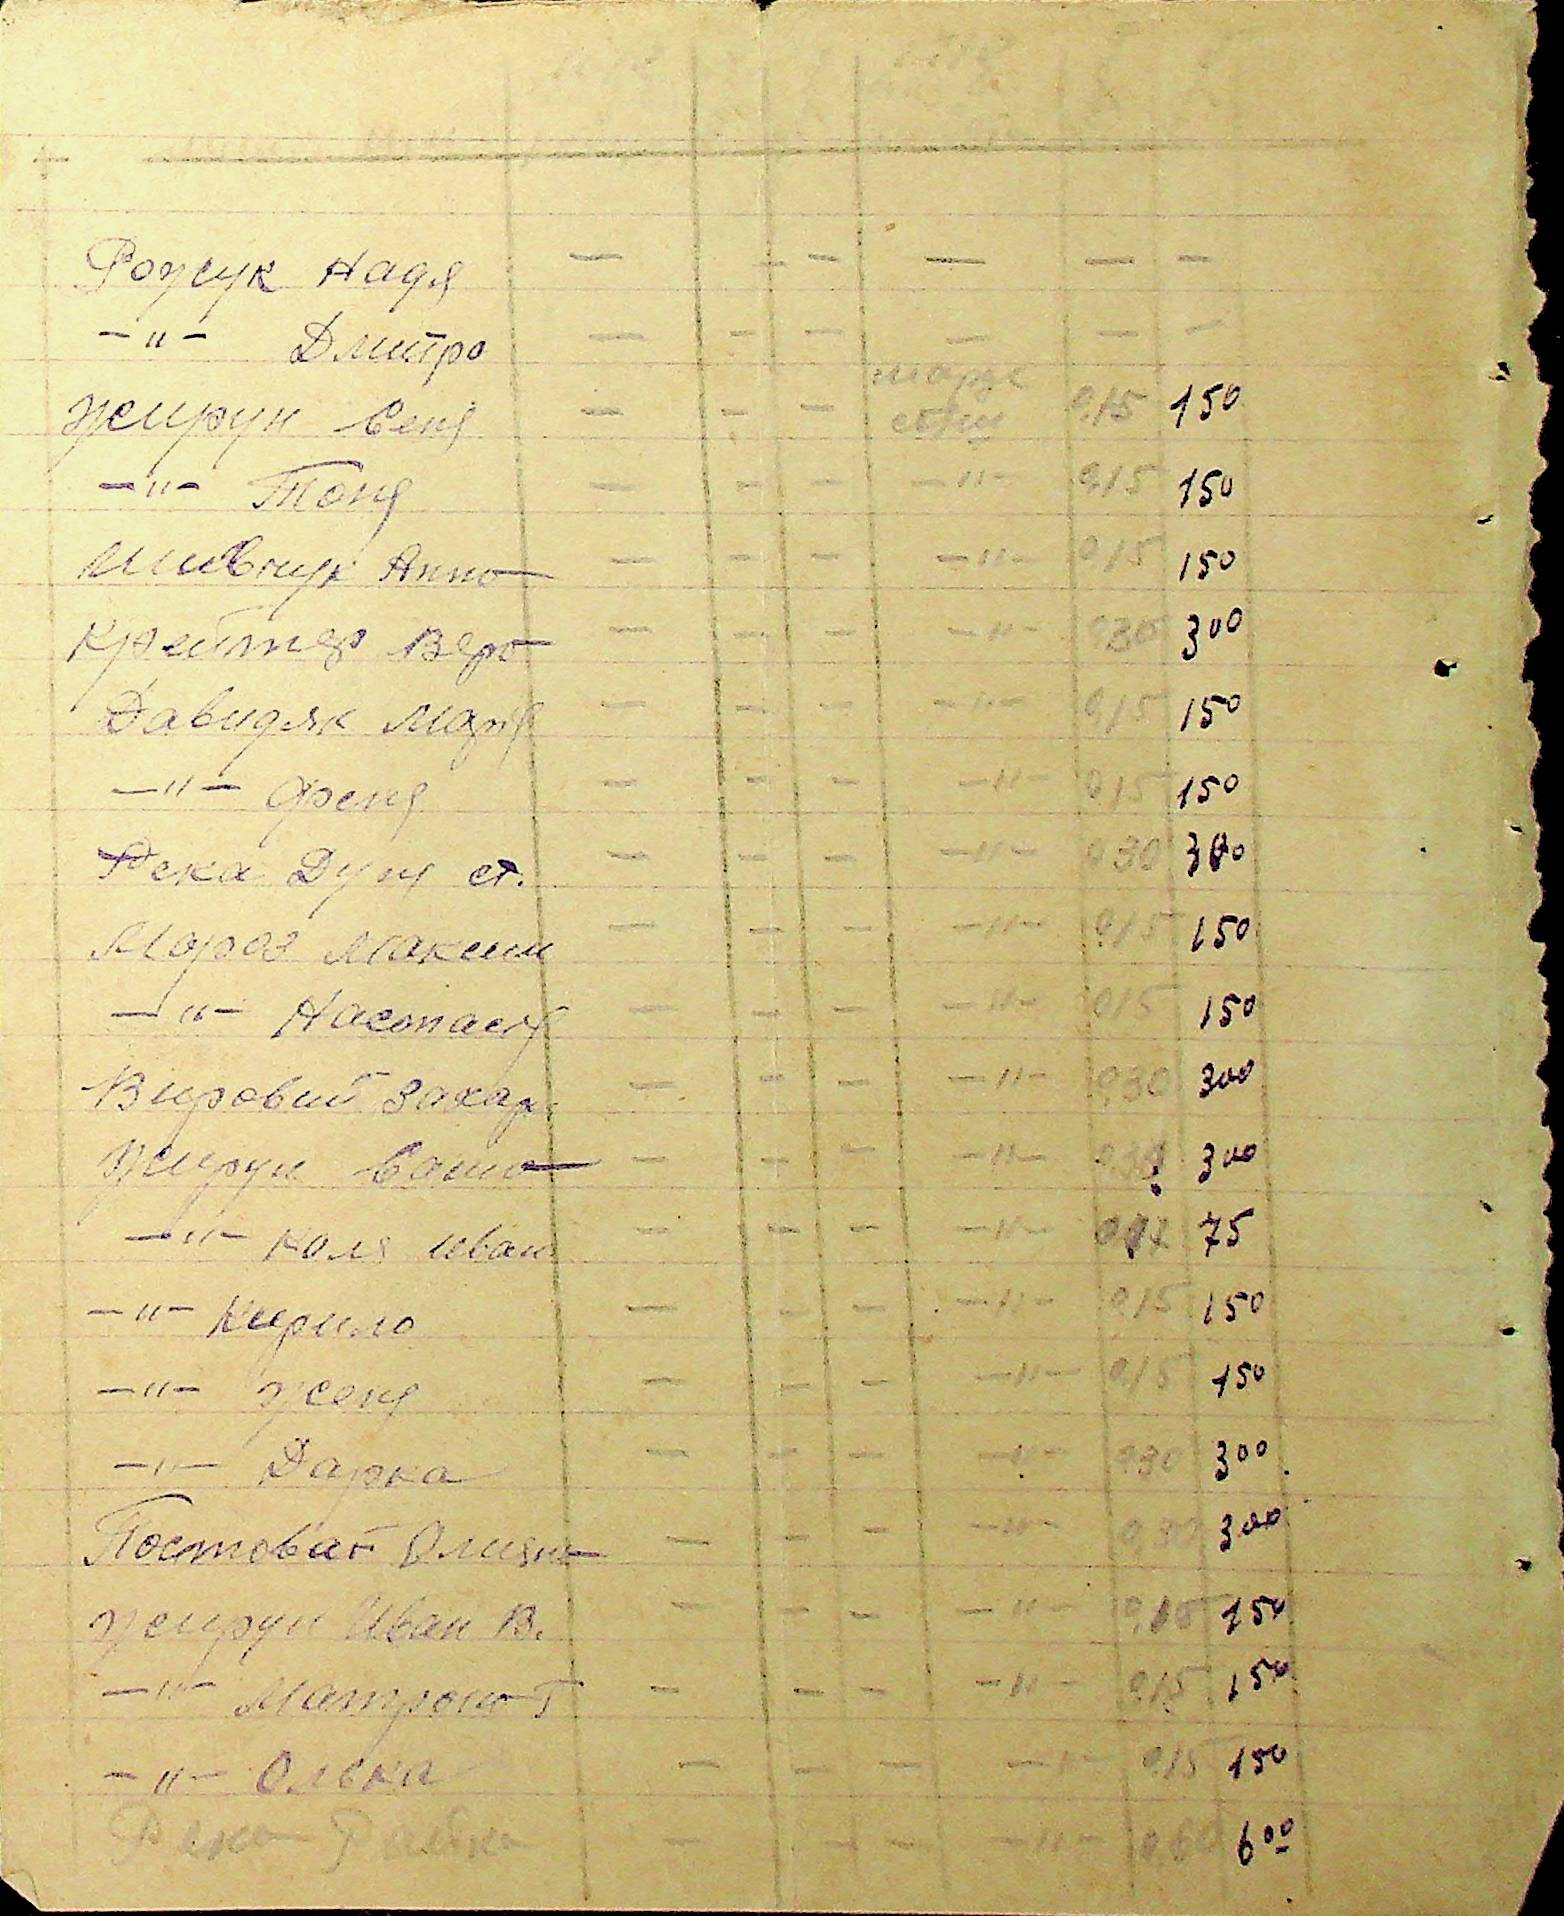 Рожук Надя — — — — — —
—"— Дмитро — — — — — —
Жирун Сеня — — — 0,15 150
—"— Тоня — — — —"— 0,15 150
Шивчук Анна — — — —"— 0,15 150
Креймер Вера — — — —"— 0,30 300
Давидяк Марія — — — —"— 0,15 150
—"— Феня — — — —"— 0,15 150
Река Дуня ст. — — — —"— 0,30 300
Мороз Максим — — — —"— 0,15 150
—"— Настася — — — —"— 0,15 150
Вировий Захар — — — —"— 0,30 300
Жирун Саша — — — —"— 0,30 300
—"— Коля Иван — — — —"— 75
—"— Кирило — — — —"— 0,15 150
—"— Женя — — — —"— 0,15 150
—"— Дарка — — — —"— 0,30 300
Постоват — — — —"— 0,30 300
Жирун Иван В. — — — —"— 0,15 150
—"— Матрона Т — — — —"— 0,15 150
—"— Олька — — — —"— 0,15 150
Река Райка — — — —"— 0,60 6 00